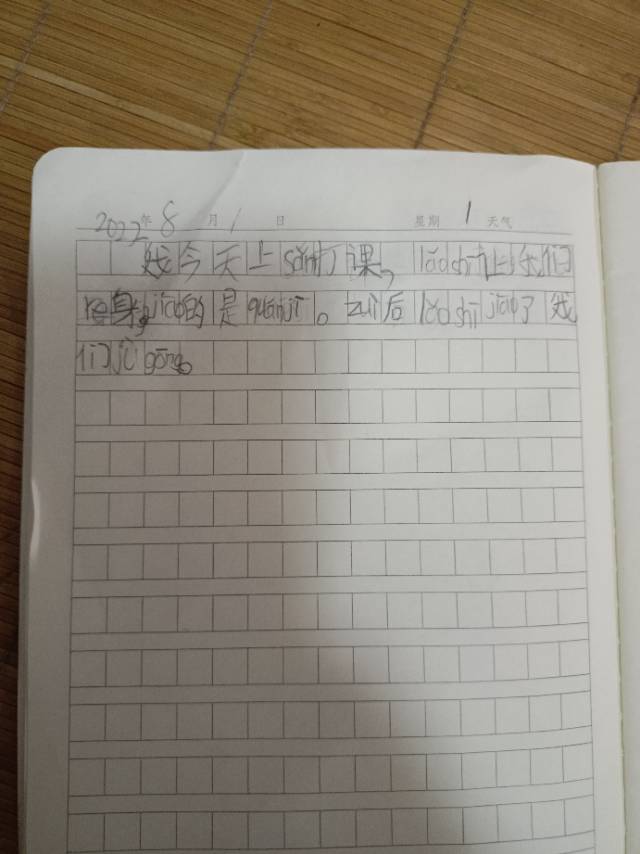 2022年8月1日 星期1 天气
我今天上sǎndǎ课，lǎoshī让我们
rè身，jiāo的是quánjī。zuì后lǎoshī jiāo了我
们jū gōng。